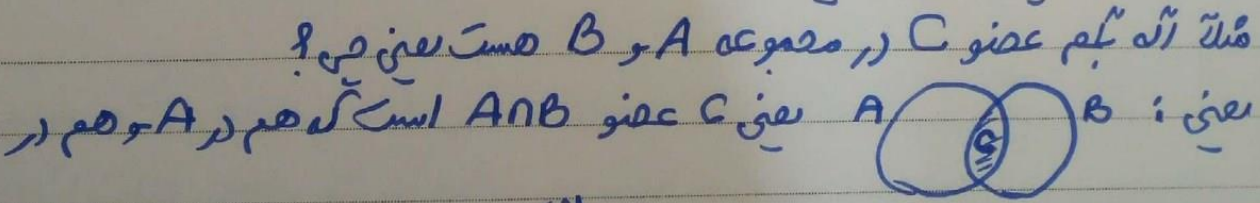 مثلاً اگه بگم عضو C در مجموعه A و B هست یعنی چی؟
یعنی : A B C یعنی C عضو A∩B است که هم در A و هم در